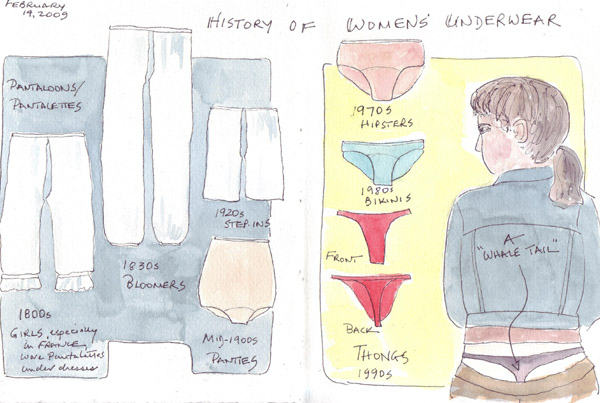 FEBRUARY
19, 2009
HISTORY OF WOMENS' UNDERWEAR
PANTALOONS/
PANTALETTES
1800s
GIRLS, especially
in FRANCE,
wore pantalettes
under dresses
1830s
BLOOMERS
1920s
STEP-INS
MID-1900s
PANTIES
1970s
HIPSTERS
1980s
BIKINIS
FRONT
BACK
THONGS
1990s
A
"WHALE TAIL"